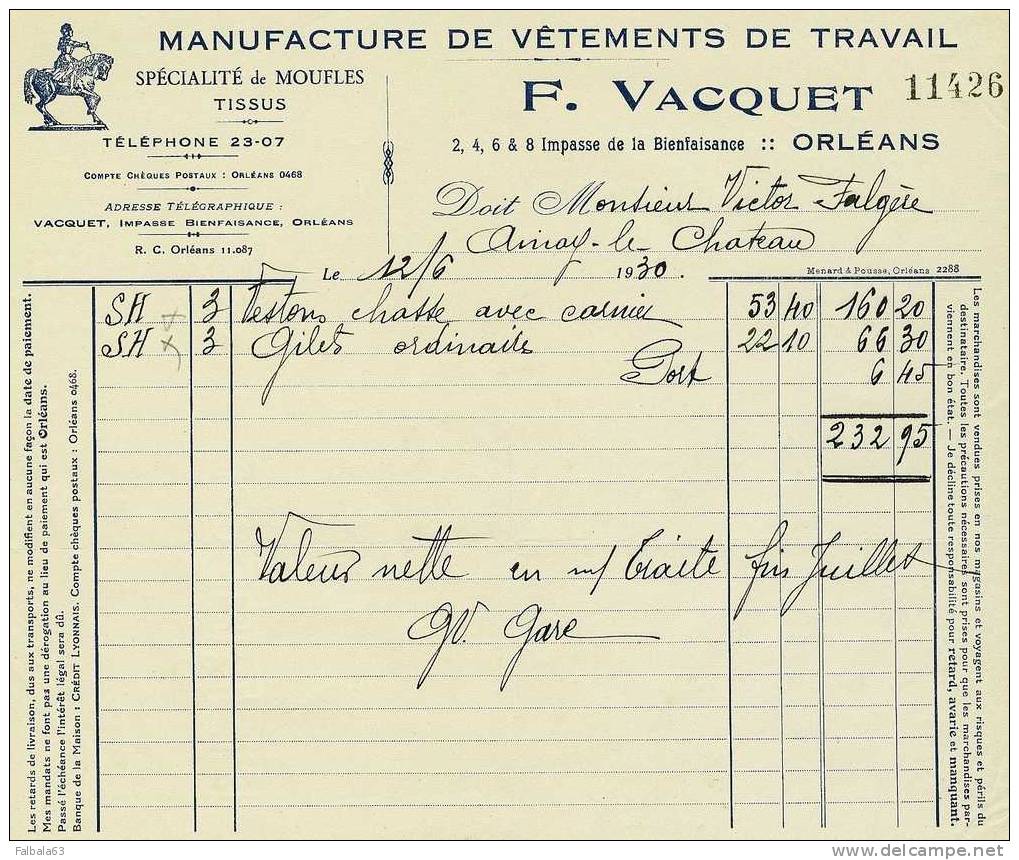 MANUFACTURE DE VÊTEMENTS DE TRAVAIL
SPÉCIALITÉ de MOUFLES
TISSUS
TÉLÉPHONE 23-07
COMPTE CHÈQUES POSTAUX : ORLÉANS 0468
ADRESSE TÉLÉGRAPHIQUE :
VACQUET, IMPASSE BIENFAISANCE, ORLÉANS
R. C. Orléans 11.087
F. VACQUET
11426
2, 4, 6 & 8 Impasse de la Bienfaisance :: ORLÉANS
Doit Monsieur Victor Falgère
Ainay-le-Chateau
Le 12/6 1930.
Menard & Pousse, Orléans 2288
SH 3 Vestons chasse avec carnier 53 40 160 20
SH 3 Gilets ordinaires 22 10 66 30
Port 6 45
232 95
Valeur nette en m/ traite fin Juillet
GV. Gare
Les retards de livraison, dus aux transports, ne modifient en aucune façon la date de paiement.
Mes mandats ne font pas une dérogation au lieu de paiement qui est Orléans.
Passé l'échéance l'intérêt légal sera dû.
Banque de la Maison : CRÉDIT LYONNAIS. Compte chèques postaux : Orléans 0468.
Les marchandises sont vendues prises en nos magasins et voyagent aux risques et périls du
destinataire. Toutes les précautions nécessaires sont prises pour que les marchandises par-
viennent en bon état. — Je décline toute responsabilité pour retard, avarie et manquant.
Falbala63
delcampe.net